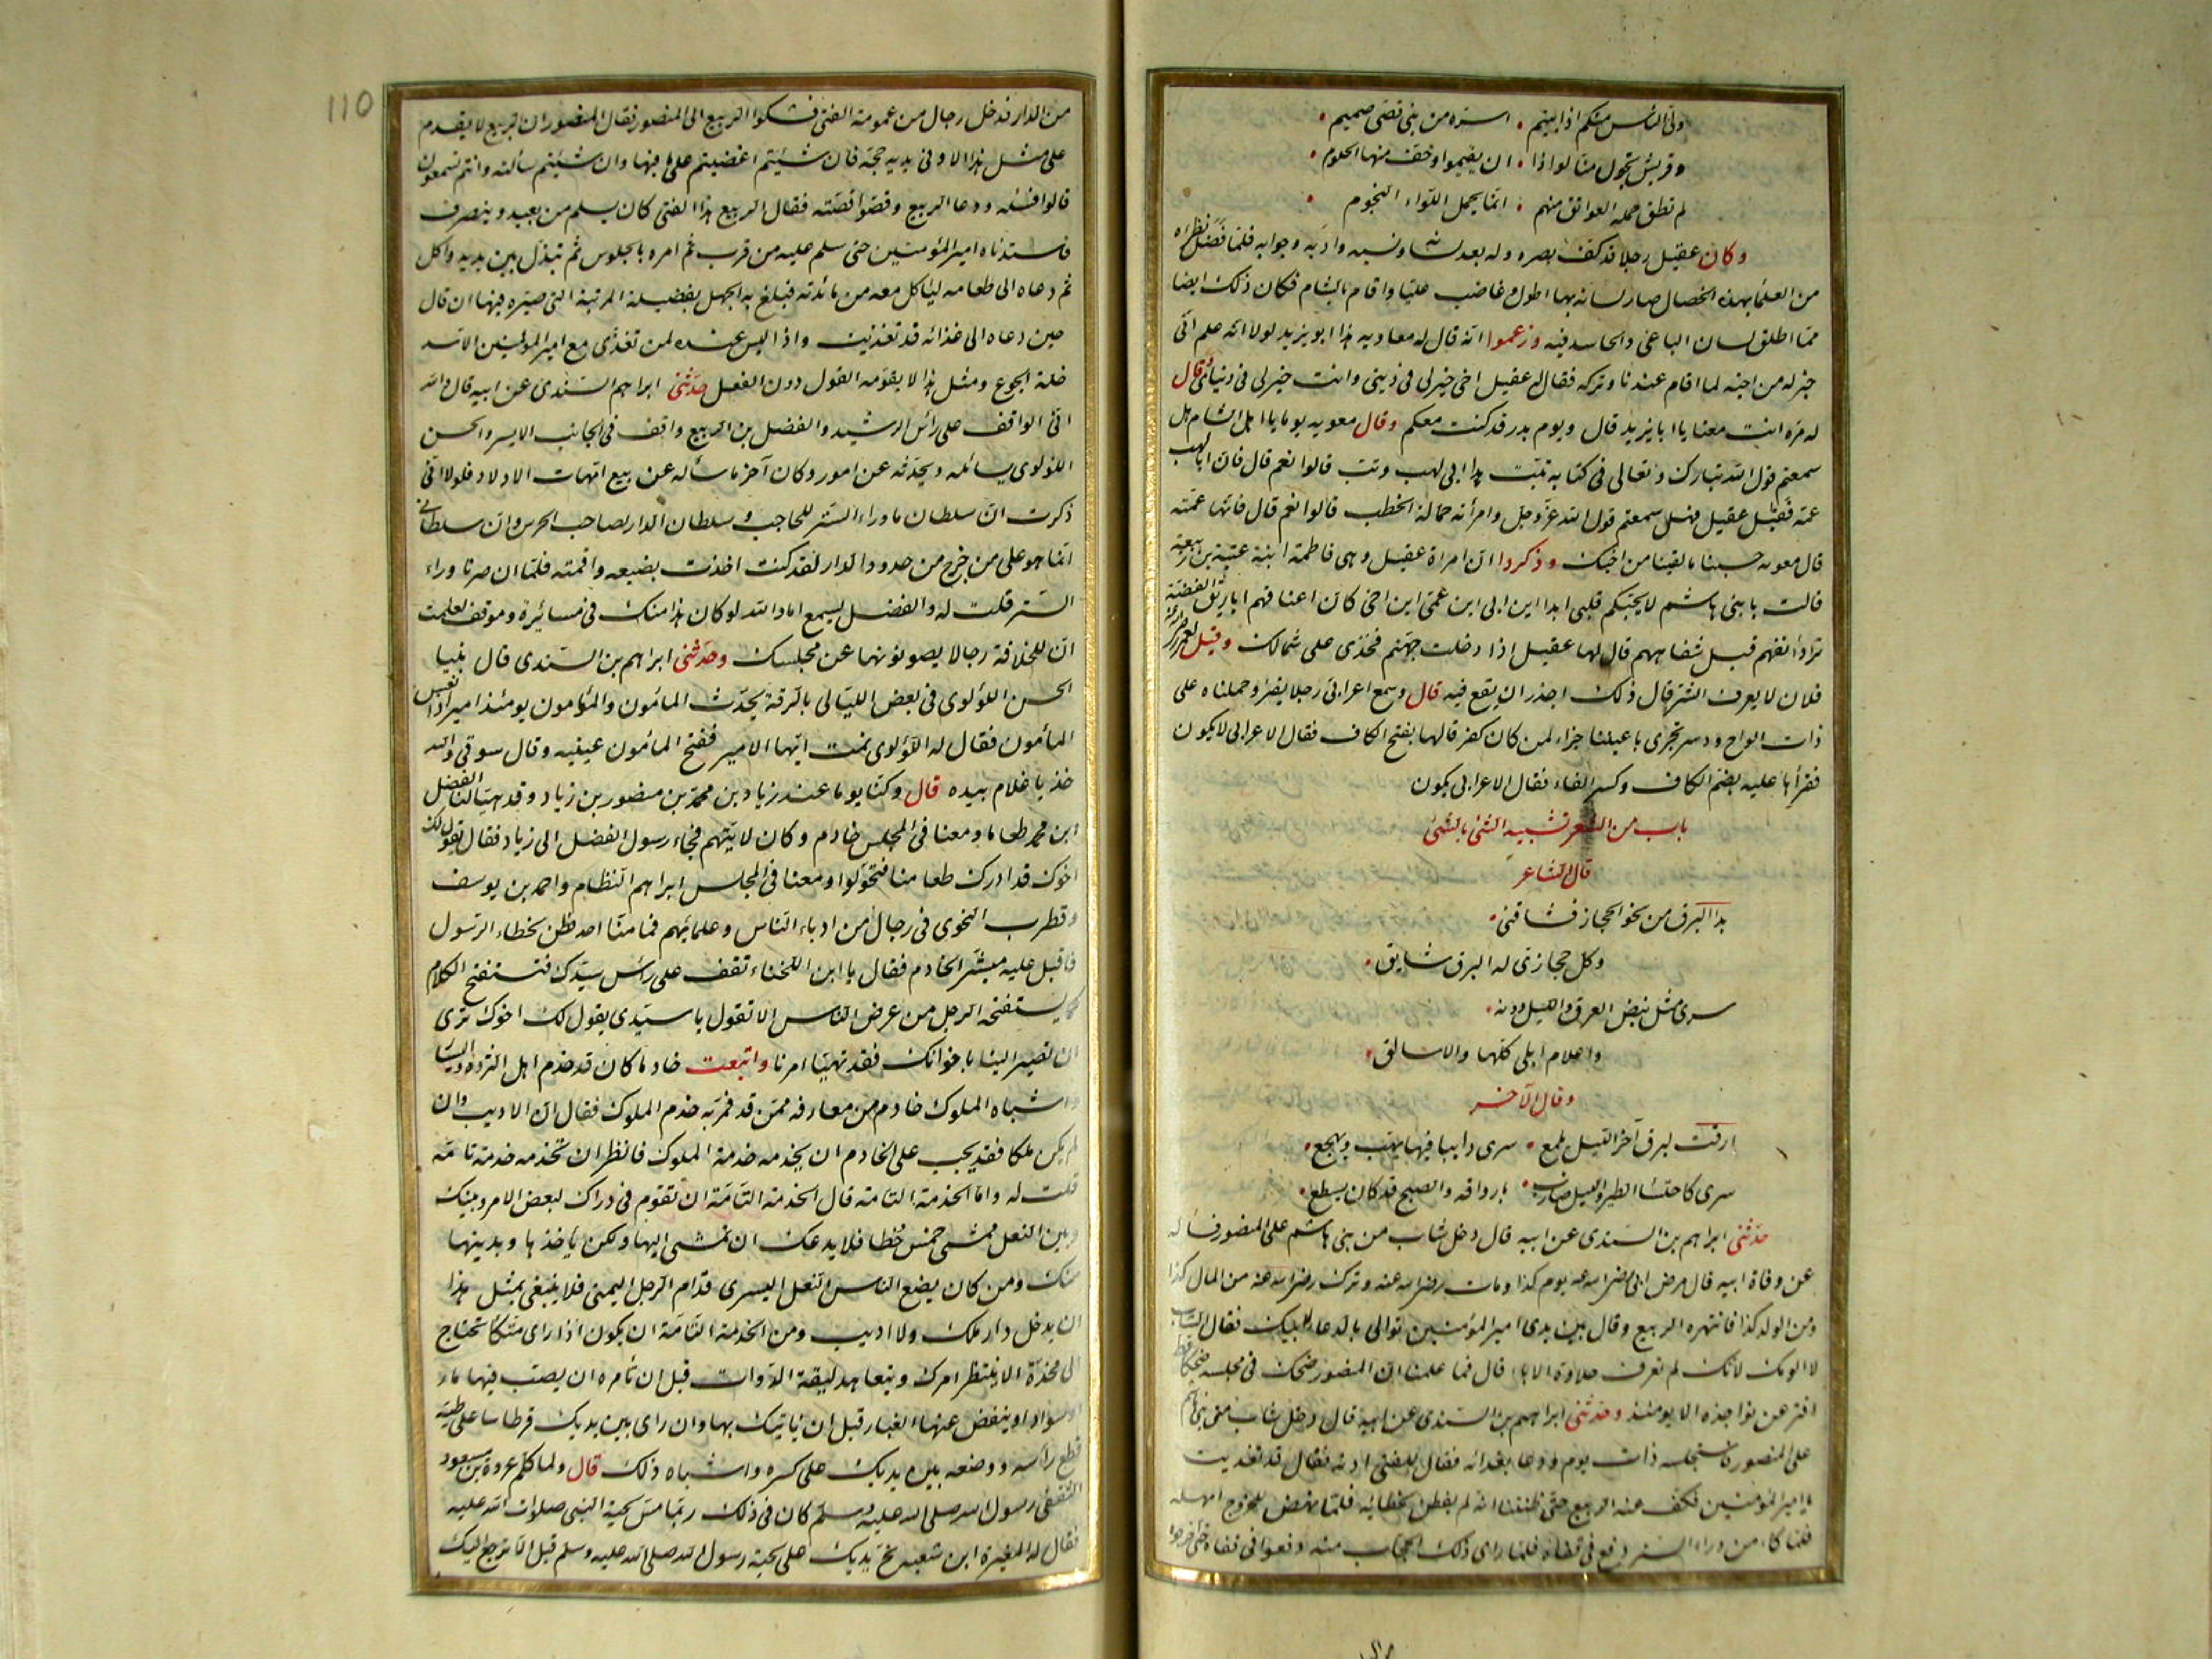 وفي الناس منكم اذا ابيتم • اسرة من بني قصي صميم •
وقريش تجول منا لواذا • ان يقيموا وخف منها الحلوم •
لم تطق حمله العواتق منهم • انما يحمل اللواء النجوم •
وكان عقيل رجلا قد كف بصره وله بعد لسانه ونسبه وادبه وجوابه فلما فضل نظراه
من العلماء بهذه الخصال صار لسانه بها اطول وغاضب عليا واقام بالشام فكان ذلك ايضا
مما اطلق لسان الباغي والحاسد فيه وزعموا انه قال له معاوية هذا ابو يزيد لولا انه علم اني
خير له من اخيه لما اقام عندنا وتركه فقال له عقيل اخي خير لي في ديني وانت خير لي في دنياي وقال
له مرة انت معنا يا ابا يزيد قال ويوم بدر قد كنت معكم وقال معويه يوما يا اهل الشام هل
سمعتم قول الله تبارك وتعالى في كتابه تبت يدا ابي لهب وتب قالوا نعم قال فان ابا لهب
عمه فقال عقيل فهل سمعتم قول الله عز وجل وامرأته حمالة الحطب قالوا نعم قال فانها عمته
قال معويه حسبنا ما لقينا من اخيك وذكروا ان امراة عقيل وهي فاطمة ابنة عتبة بن ربيعة
قالت يا بني هاشم لا يحبكم قلبي ابدا اين ابي اين عمي اين اخي كان اعناقهم اباريق الفضة
ترد أنفهم قبل شفاههم قال لها عقيل اذا دخلت جهنم فخذي على شمالك وقيل لعمر رضي الله عنه
فلان لا يعرف الشر قال ذلك اجدر ان يقع فيه قال وسمع اعرابي رجلا يقرأ وحملناه على
ذات الواح ودسر تجري باعيننا جزاء لمن كان كفر قالها بفتح الكاف فقال الاعرابي لا يكون
فقرأها عليه بضم الكاف وكسر الفاء فقال الاعرابي يكون
باب من الشعر تشبيه الشئ بالشئ
قال الشاعر
بدا البرق من نحو الحجاز فشاقني •
وكل حجازي له البرق شايق •
سرى مثل نبض العرق والليل دونه •
واعلام ابلى كلها والاسالق •
وقال الآخر
ارقت لبرق آخر الليل يلمع • سرى دايبا فيها يهب ويهجع •
سرى كاحتسا الطير والليل ضارب • بارواقه والصبح قد كان يسطع •
حدثني ابراهيم بن السندي عن ابيه قال دخل شاب من بني هاشم على المنصور فسأله
عن وفاة ابيه قال مرض ابي رضي الله عنه يوم كذا ومات رضي الله عنه وترك رضي الله عنه من المال كذا
ومن الولد كذا فانتهره الربيع وقال بين يدي امير المؤمنين توالي بالدعاء لابيك فقال الشاب
لا الومك لانك لم تعرف حلاوة الاباء قال فما علمنا ان المنصور ضحك في مجلسه ضحكا قط
افتر عن نواجذه الا يومئذ وحدثني ابراهيم بن السندي عن ابيه قال دخل شاب من بني هاشم
على المنصور فاستجلسه ذات يوم ودعا بغدائه فقال للفتى ادنه فقال قد تغديت
يا امير المؤمنين فكف عنه الربيع حتى ظننا انه لم يفطن لخطائه فلما نهض للخروج امهله
فلما كان من وراء الستر دفع في قفاه فلما راى ذلك الحجاب منه دفعوا في قفاه حتى اخرجوا
110
من الدار فدخل رجال من عمومة الفتى فشكوا الربيع الى المنصور فقال المنصور ان الربيع لا يقدم
على مثل هذا الا وفي يديه حجة فان شئتم اغضيتم على ما فيها وان شئتم سألته وانتم تسمعون
قالوا فسله ودعا الربيع وقصوا قصته فقال الربيع هذا الفتى كان يسلم من بعيد وينصرف
فاستدناه امير المؤمنين حتى سلم عليه من قرب ثم امره بالجلوس ثم تبذل بين يديه واكل
ثم دعاه الى طعامه ليأكل معه من مائدته فبلغ به الجهل بفضيلة المرتبة التي صيره فيها ان قال
حين دعاه الى غذائه قد تغذيت واذا ليس عنده لمن تغذى مع امير المؤمنين الا سد
خلة الجوع ومثل هذا لا يقومه القول دون الفعل حدثني ابراهيم السندي عن ابيه قال والله
اني الواقف على رأس الرشيد والفضل بن الربيع واقف في الجانب الايسر والحسن
اللؤلوي يسائله ويحدثه عن امور وكان آخر ما سأله عن بيع امهات الاولاد فلولا اني
ذكرت ان سلطان ما وراء الستر للحاجب وسلطان الدار لصاحب الحرس وان سلطاني
انما هو على من خرج من حدود الدار لقد كنت اخذت بضبعه واقمته فلما ان صرنا وراء
الستر قلت له والفضل يسمع اما والله لو كان هذا منك في مسائرة وموقف لعلمت
ان للخلافة رجالا يصونونها عن مجلسك وحدثني ابراهيم بن السندي قال بينا
الحسن اللؤلوي في بعض الليالي بالرقة يحدث المأمون والمأمون يومئذ امير اذ نعس
المأمون فقال له اللؤلوي نمت ايها الامير ففتح المأمون عينيه وقال سوقي والله
خذ يا غلام بيده قال وكنا يوما عند زياد بن محمد بن منصور بن زياد وقد هيا لنا الفضل
ابن محمد طعاما ومعنا في المجلس خادم وكان لابيهم فجاء رسول الفضل الى زياد فقال يقول لك
اخوك قد ادرك طعامنا فتحولوا ومعنا في المجلس ابراهيم النظام واحمد بن يوسف
وقطرب النحوي في رجال من ادباء الناس وعلمائهم فما منا احد فطن لخطاء الرسول
فاقبل عليه مبشر الخادم فقال يا ابن اللخناء تقف على رأس سيدك فتستفتح الكلام
كما يستفتحه الرجل من عرض الناس الا تقول يا سيدي يقول لك اخوك ترى
ان تصير الينا باخوانك فقد تهيا امرنا واتبعت خادما كان قد خدم اهل الثروة واليسار
واشباه الملوك خادم من معارفه ممن قد خدم الملوك فقال ان الاديب وان
لم يكن ملكا فقد يجب على الخادم ان يخدمه خدمة الملوك فانظر ان تخدمه خدمة تامة
قلت له واما الخدمة التامة قال الخدمة التامة ان تقوم في دارك لبعض الامر وبينك
وبين النعل ممشى خمس خطا فلا يدعك ان تمشي اليها ولكن يأخذها ويدنيها
منك ومن كان يضع الناس النعل اليسرى قدام الرجل اليمنى فلا ينبغي بمثل هذا
ان يدخل دار ملك ولا اديب ومن الخدمة التامة ان يكون اذا راى متكأ تحتاج
الى مخدة الا ينتظر امرك ويتعاهد ليقة الدوات قبل ان تأمره ان يصب فيها ماء
او سوادا وينفض عنها الغبار قبل ان ياتيك بها وان راى بين يديك قرطاسا على طيه
قطع رأسه ووضعه بين يديك على كسره واشباه ذلك قال ولما كلم عروة بن مسعود
الثقفي رسول الله صلى الله عليه وسلم كان في ذلك ربما مس لحية النبي صلوات الله عليه
فقال له المغيرة ابن شعبه نح يديك على لحية رسول الله صلى الله عليه وسلم قبل الا ترجع اليك